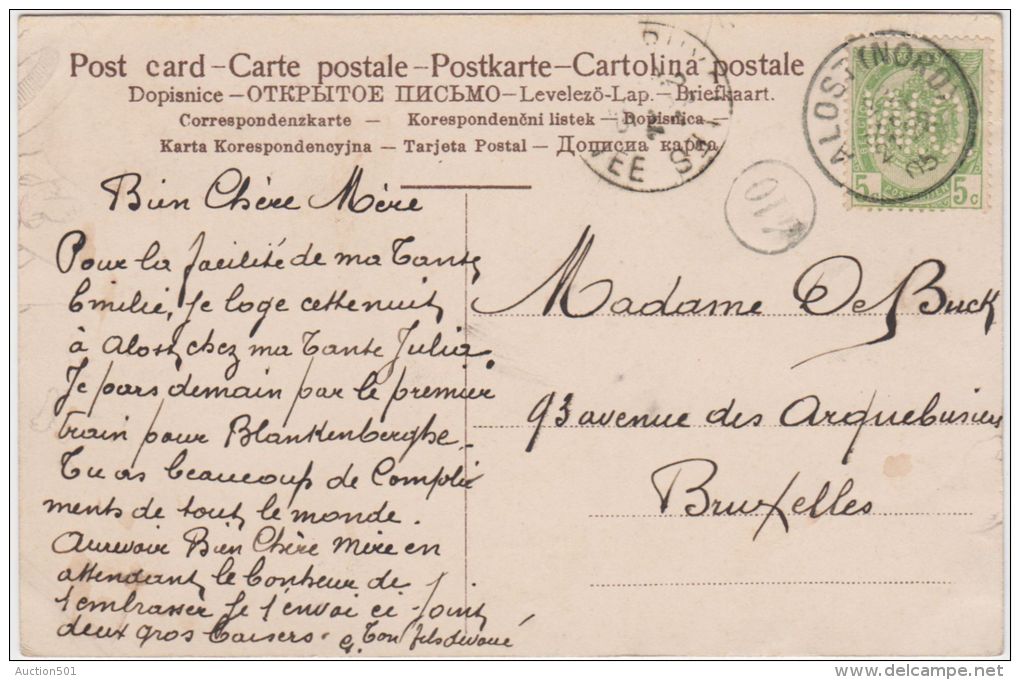 Post card – Carte postale – Postkarte – Cartolina postale
Dopisnice – ОТКРЫТОЕ ПИСЬМО – Levelező-Lap. – Briefkaart.
Correspondenzkarte – Korespondenční listek – Dopisnica –
Karta Korespondencyjna – Tarjeta Postal – Дописна карта
ALOST (NORD)
05
5 POSTERIJEN 5c
VÉE
110
Bien Chère Mère
Pour la facilité de ma Tante
Emilie, Je loge cette nuit
à Alost, chez ma Tante Julia.
Je pars demain par le premier
train pour Blankenberghe.
Tu as beaucoup de Compli
ments de tout le monde.
Aurevoir Bien Chère Mère en
attendant le bonheur de
t'embrasser Je t'envoi ci-Joint
deux gros baisers.
Ton fils dévoué
Madame De Buck
93 avenue des Arquebusiers
Bruxelles
Auction501